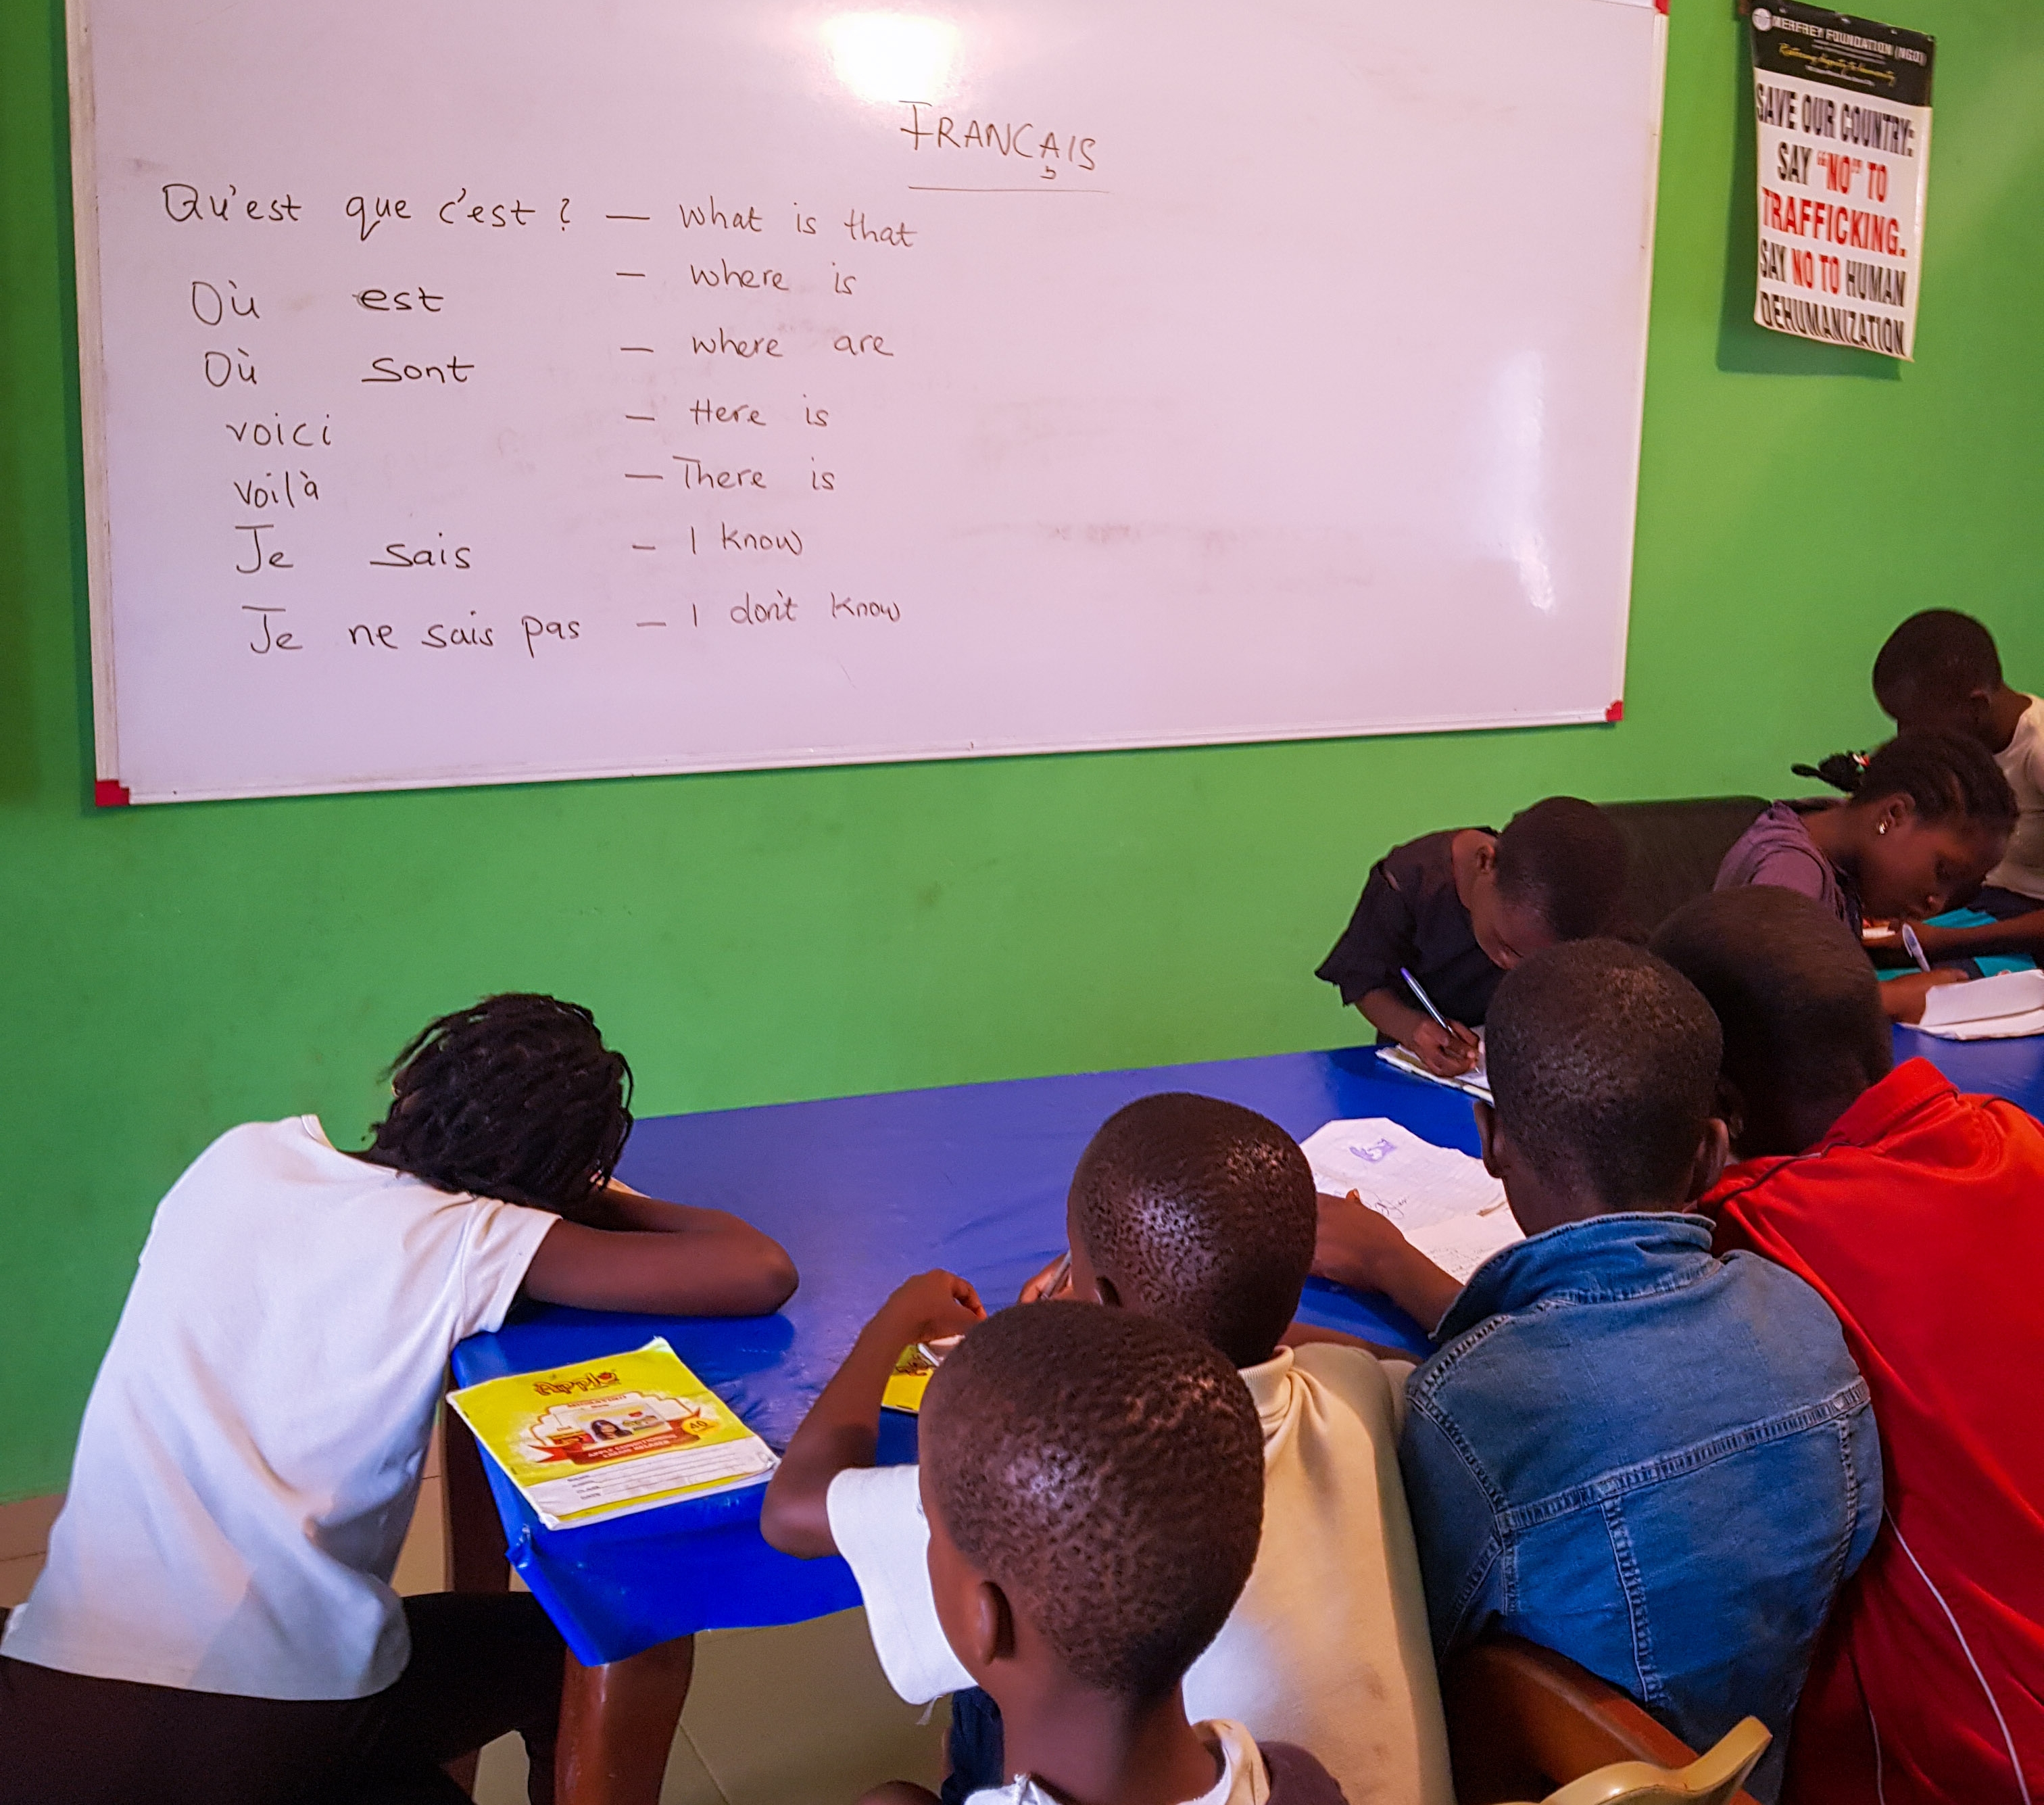 FRANCAIS
Qu'est que c'est ? — What is that
Où est — where is
Où sont — where are
voici — Here is
voilà — There is
Je sais — I know
Je ne sais pas — I don't know
MERFREY FOUNDATION (NGO)
Restoring dignity to humanity
SAVE OUR COUNTRY:
SAY "NO" TO
TRAFFICKING.
SAY NO TO HUMAN
DEHUMANIZATION
Apple
40